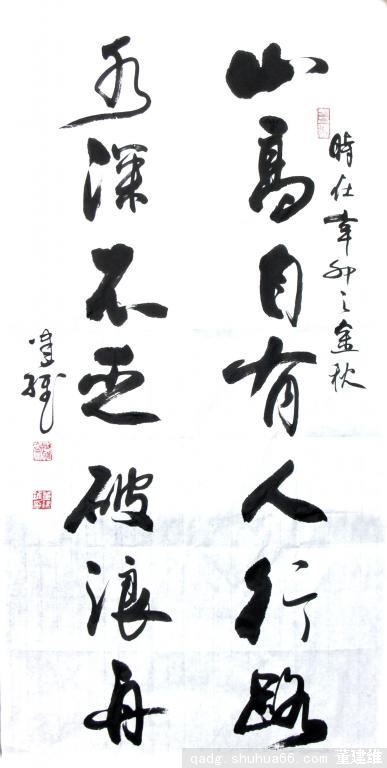 時在辛卯之金秋
山高自有人行路
水深不乏破浪舟
建維
qadg.shuhua66.com 董建维